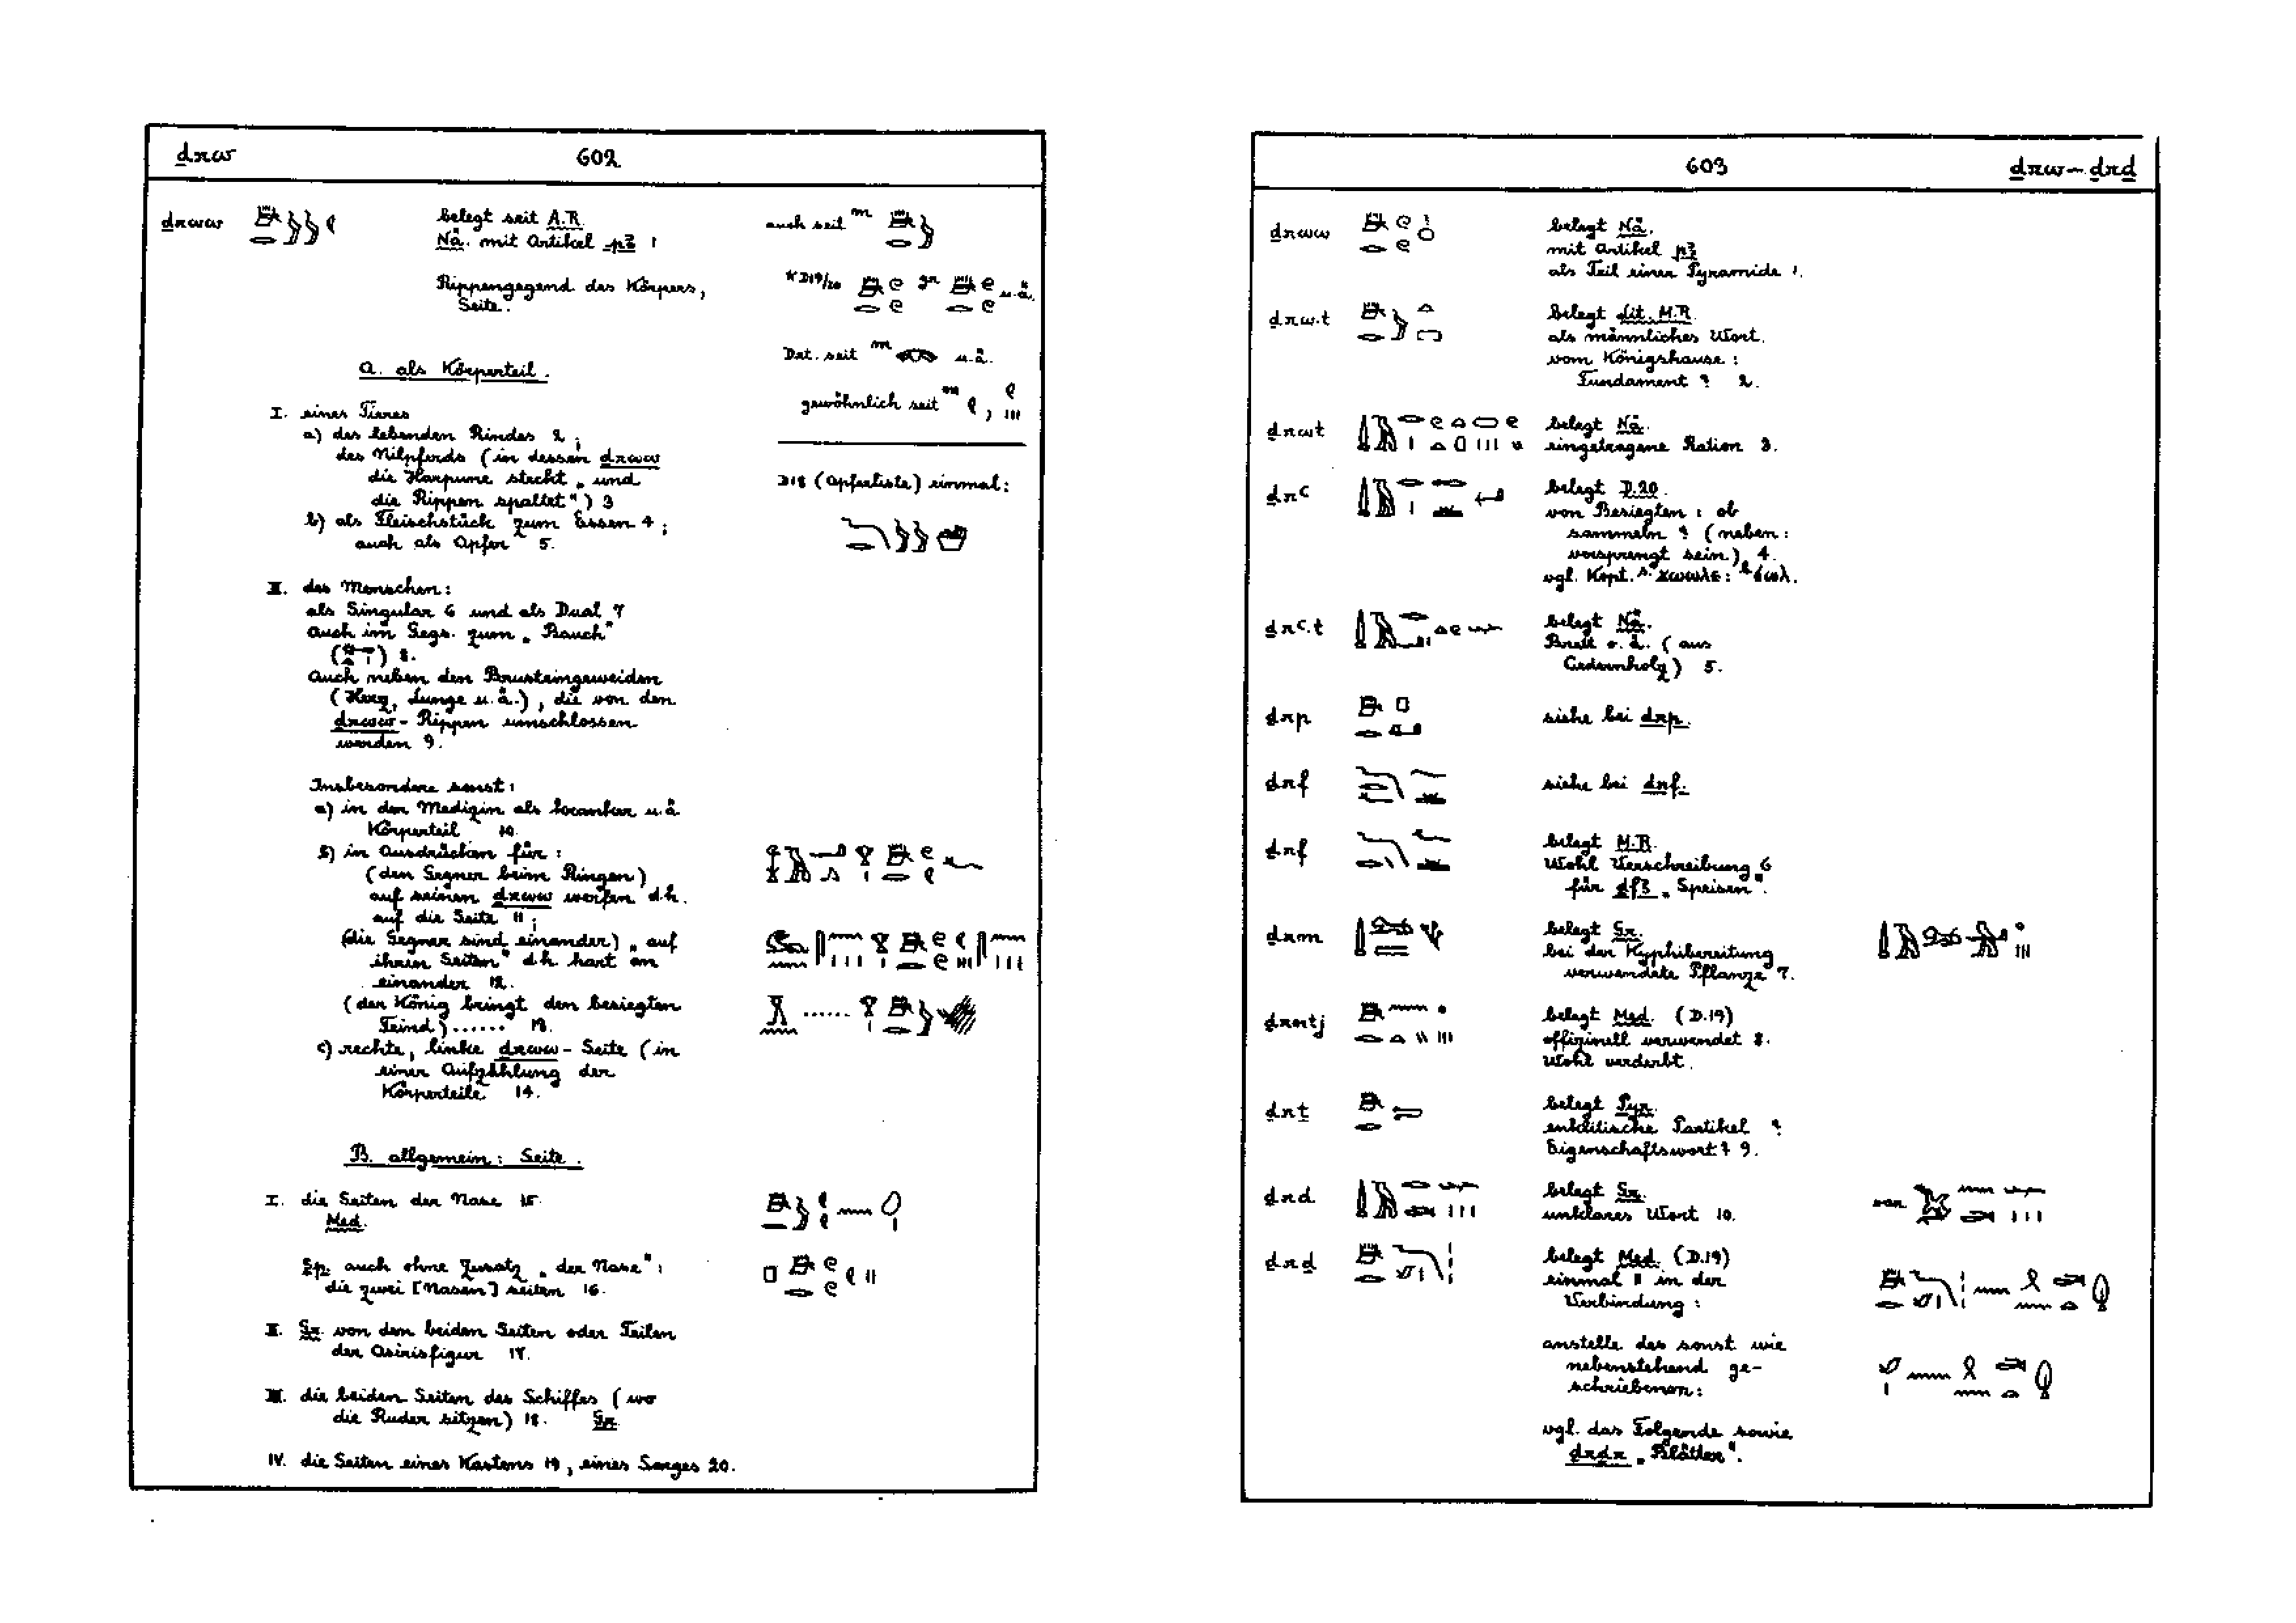 ḏrw
602
ḏrww
belegt seit A.R.
Nä. mit Artikel pꜣ 1
Rippengegend des Körpers,
Seite.
auch seit
D19/20
gr
u.ä.
Det. seit
u.ä.
gewöhnlich seit
D18 (Opferliste) einmal:
A. als Körperteil.
I. eines Tieres
a) des lebenden Rindes 2;
des Nilpferds (in dessen ḏrww
die Harpune steckt „und
die Rippen spaltet") 3
b) als Fleischstück zum Essen 4;
auch als Opfer 5.
II. des Menschen:
als Singular 6 und als Dual 7
auch im Gegs. zum „Bauch"
( ) 8.
Auch neben den Brusteingeweiden
(Herz, Lunge u.ä.), die von den
ḏrww-Rippen umschlossen
werden 9.
Insbesondere sonst:
a) in der Medizin als kranker u.ä.
Körperteil 10.
b) in Ausdrücken für:
(den Gegner beim Ringen)
auf seinen ḏrww werfen d.h.
auf die Seite 11;
(die Gegner sind einander) „auf
ihren Seiten" d.h. hart an
einander 12.
(der König bringt den besiegten
Feind) ...... 13.
c) rechte, linke ḏrww-Seite (in
einer Aufzählung der
Körperteile 14.
B. allgemein: Seite.
I. die Seiten der Nase 15.
Med.
Sp. auch ohne Zusatz „der Nase":
die zwei [Nasen] seiten 16.
II. Gr. von den beiden Seiten oder Teilen
der Osirisfigur 17.
III. die beiden Seiten des Schiffes (wo
die Ruder sitzen) 18. Gr.
IV. die Seiten eines Kastens 19, eines Sarges 20.
603
ḏrw – ḏrḏ
ḏrww
belegt Nä.
mit Artikel pꜣ
als Teil einer Pyramide 1.
ḏrw.t
belegt lit. M.R.
als männliches Wort.
vom Königshause:
Fundament? 2.
ḏrwt
belegt Nä.
eingetragene Ration 3.
ḏrꜥ
belegt D.20.
von Besiegten: ob
sammeln? (neben:
versprengt sein) 4.
vgl. Kopt. S. ϫⲱⲱⲗⲉ: B. ϭⲱⲗ.
ḏrꜥ.t
belegt Nä.
Brett o.ä. (aus
Cedernholz) 5.
ḏrp
siehe bei drp.
ḏrf
siehe bei drf.
ḏrf
belegt M.R.
Wohl Verschreibung 6
für ḏfꜣ „Speisen".
ḏrm
belegt Gr.
bei der Kyphibereitung
verwendete Pflanze 7.
ḏrntj
belegt Med. (D.19)
offizinell verwendet 8.
Wohl verderbt.
ḏrt
belegt Pyr.
enklitische Partikel?
Eigenschaftswort? 9.
ḏrd
belegt Gr.
unklares Wort 10.
var.
ḏrḏ
belegt Med. (D.19)
einmal 11 in der
Verbindung:
anstelle des sonst wie
nebenstehend ge-
schriebenen:
vgl. das Folgende sowie
ḏrḏr „Blätter".